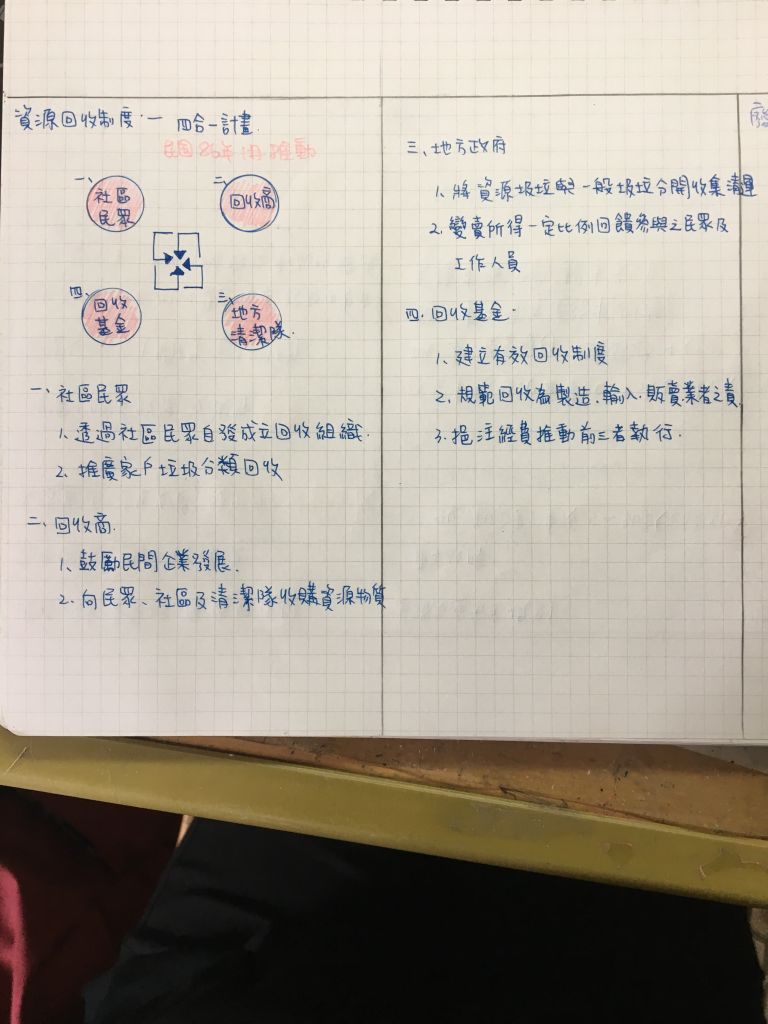 資源回收制度:一 四合一計畫.
民國86年1月推動
一、
社區
民眾
二、
回收商
四、
回收
基金
三、
地方
清潔隊.
一、社區民眾
1、透過社區民眾自發成立回收組織.
2、推廣家戶垃圾分類回收
二、回收商.
1、鼓勵民間企業發展.
2、向民眾、社區及清潔隊收購資源物質
三、地方政府
1、將資源垃圾與一般垃圾分開收集清運
2、變賣所得一定比例回饋參與之民眾及
工作人員
四.回收基金.
1、建立有效回收制度
2、規範回收為製造、輸入.販賣業者之責.
3、挹注經費推動前三者執行.
廢